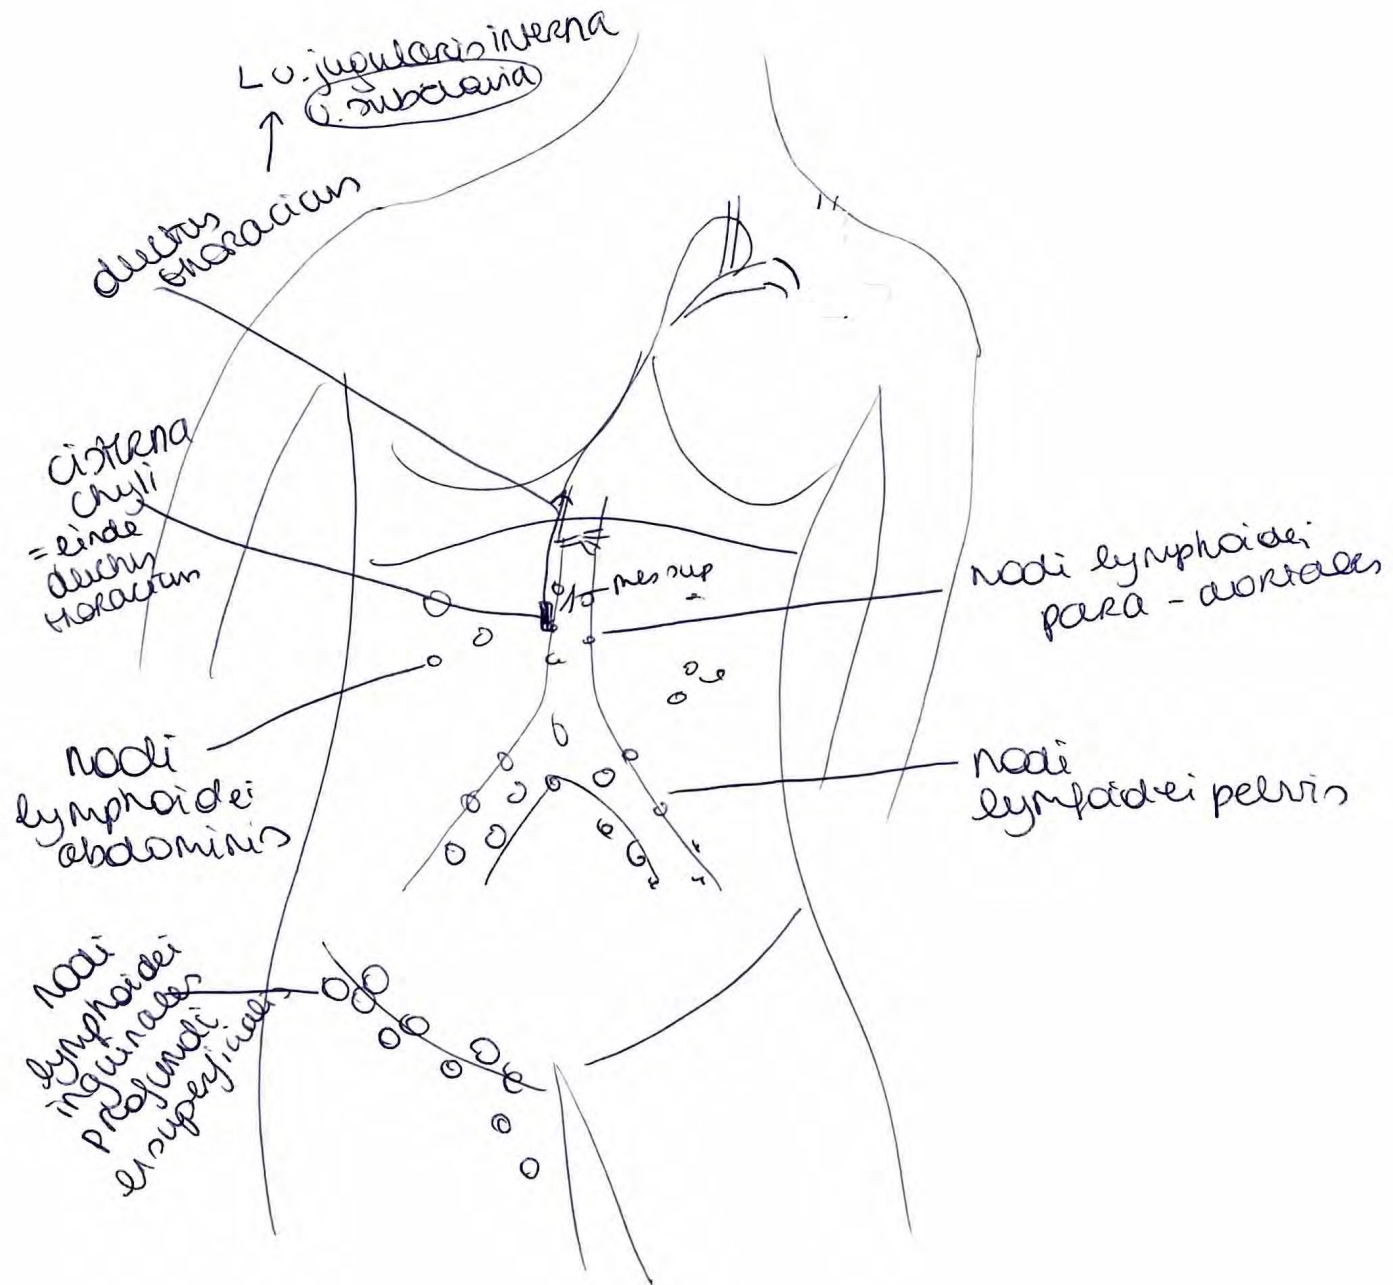 L v. jugularis interna
v. subclavia
↑
ductus
thoracicus
cisterna
chyli
= einde
ductus
thoracicus
mes sup
nodi lymphoidei
para - aortales
nodi
lymphoidei
abdominis
nodi
lymfoidei pelvis
nodi
lymphoidei
inguinales
profundi
et superficiales